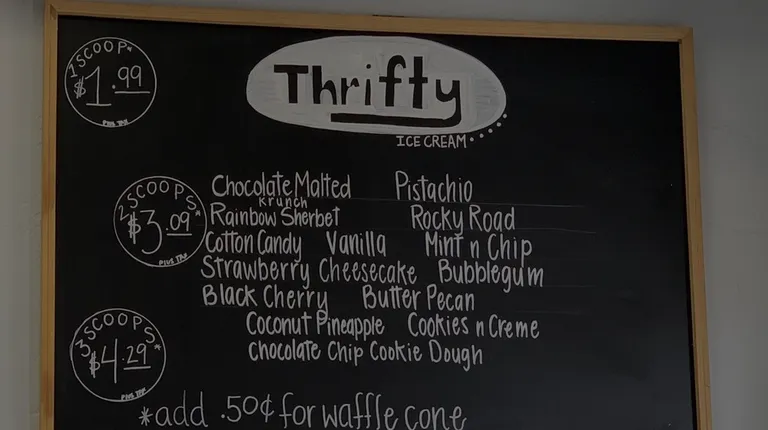 1 SCOOP*
$1.99
PLUS TAX
Thrifty
ICE CREAM
2 SCOOPS
$3.09*
PLUS TAX
Chocolate Malted Krunch
Pistachio
Rainbow Sherbet
Rocky Road
Cotton Candy Vanilla Mint n Chip
Strawberry Cheesecake Bubblegum
Black Cherry Butter Pecan
Coconut Pineapple Cookies n Creme
Chocolate Chip Cookie Dough
3 SCOOPS*
$4.29
PLUS TAX
*add .50¢ for waffle cone